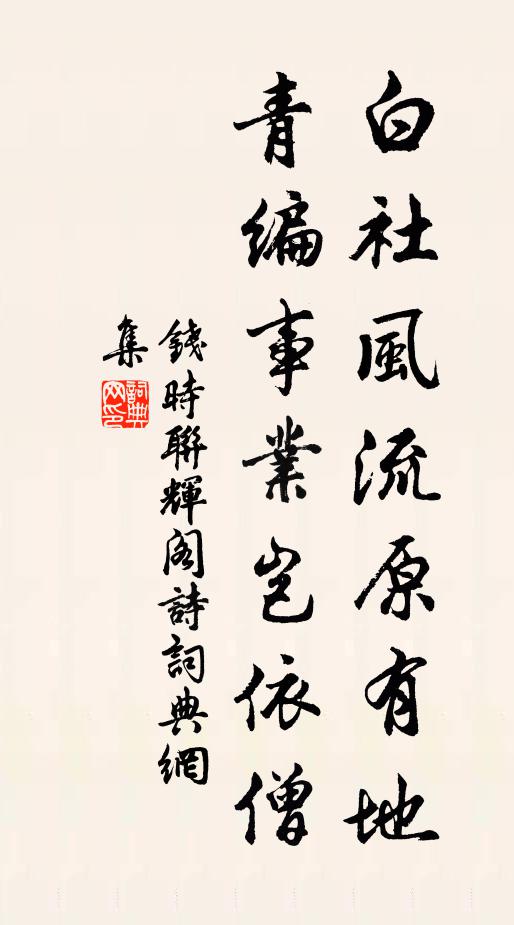 白社風流原有地
青編事業豈依僧
錢時聯輝阁詩詞典網
集
詞典網印